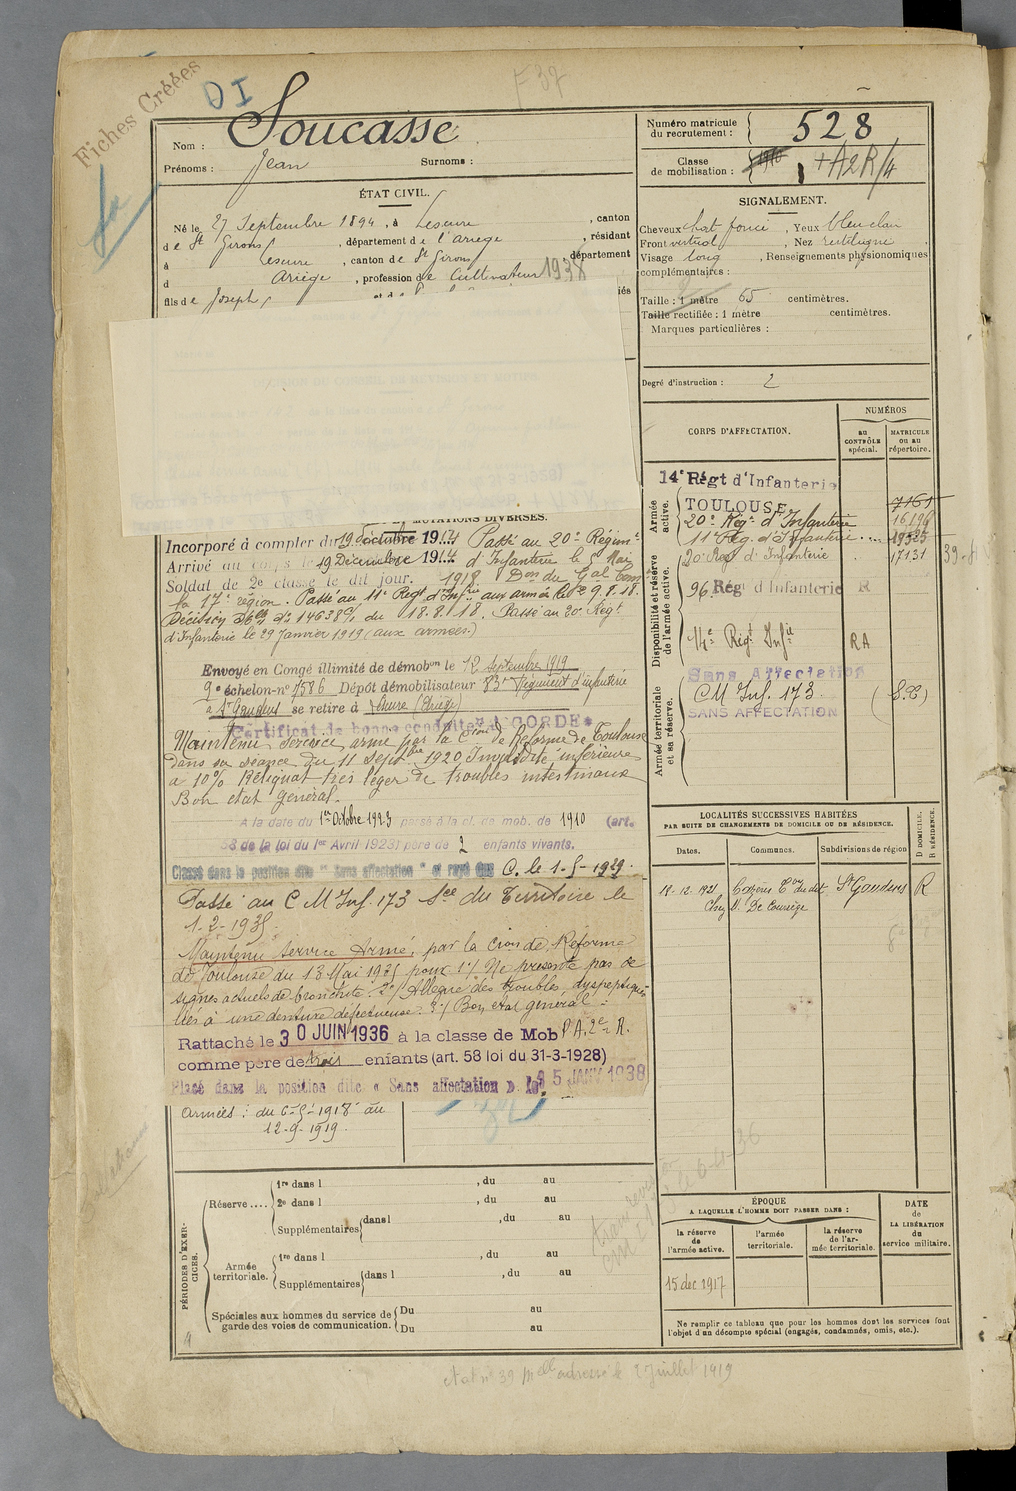 Fiches Créées
DI
F 37
Nom : Soucasse
Prénoms : Jean Surnoms :
ÉTAT CIVIL.
Né le 27 Septembre 1894, à Lescure, canton
de St Girons, département de l'Ariège, résidant
à Lescure, canton de St Girons, département
d Ariège, profession de Cultivateur 1938
fils de Joseph et de
MUTATIONS DIVERSES.
Incorporé à compter du 19 décembre 1914 Passé au 20e Régiment
Arrivé au corps le 19 Décembre 1914 d'Infanterie le 5 Mai
Soldat de 2e classe le dit jour. 1918. Don du Gal Com
la 17e région. Passé au 11e Régt d'Infrie aux armées le 9.8.18.
Décision 14638 du 18.8.18. Passé au 20e Régt
d'Infanterie le 29 Janvier 1919 (aux armées)
Envoyé en Congé illimité de démobon le 12 septembre 1919
9e échelon-n° 1586 Dépôt démobilisateur 83e Régiment d'infanterie
à St Gaudens se retire à Lescure (Ariège)
Certificat de bonne conduite ACCORDÉ
Maintenu service armé par la Cion de Réforme de Toulouse
dans sa séance du 11 Septbre 1920. Invalidité inférieure
à 10% Reliquat très léger de troubles intestinaux
Bon état général.
A la date du 1er Octobre 1923 passé à la cl. de mob. de 1910 (art.
58 de la loi du 1er Avril 1923) père de 2 enfants vivants.
Classé dans la position dite "Sans affectation" et rayé des C. le 1-5-1929.
Passé au C M Inf. 173 See du Territoire le
1-2-1935.
Maintenu Service Armé, par la Cion de Réforme
de Toulouse du 13 Mai 1935 pour 1°/ Ne présente pas de
signes actuels de bronchite. 2°/ Allègue des troubles dyspeptiques
liés à une denture défectueuse. 3°/ Bon état général.
Rattaché le 30 JUIN 1936 à la classe de Mob P.A. 2e R.
comme père de trois enfants (art. 58 loi du 31-3-1928)
Placé dans la position dite « Sans affectation » le 5 JANV 1938
Armées : du 6-5-1918 au
12-9-1919.
PÉRIODES D'EXERCICES.
Réserve .... 1re dans l , du au
2e dans l , du au
Supplémentaires dans l , du au
Armée territoriale. 1re dans l , du au
Supplémentaires dans l , du au
Spéciales aux hommes du service de garde des voies de communication. Du au
Du au
Numéro matricule du recrutement : 528
Classe de mobilisation : 1910 +A2R/4
SIGNALEMENT.
Cheveux chat foncé, Yeux bleu clair
Front vertical, Nez rectiligne
Visage long, Renseignements physionomiques
complémentaires :
Taille : 1 mètre 65 centimètres.
Taille rectifiée : 1 mètre centimètres.
Marques particulières :
Degré d'instruction : 2
CORPS D'AFFECTATION. NUMÉROS
au CONTRÔLE spécial. MATRICULE ou au répertoire.
Armée active.
14e Régt d'Infanterie
TOULOUSE 7161
20e Régt d'Infanterie
11e Rég. d'Infanterie
20 Régt d'Infanterie 17131
Disponibilité et réserve de l'armée active.
96 Rég d'Infanterie R
14e Régt Infie RA
Sans Affectation
Armée territoriale et sa réserve.
CM Inf. 173
SANS AFFECTATION
LOCALITÉS SUCCESSIVES HABITÉES
PAR SUITE DE CHANGEMENTS DE DOMICILE OU DE RÉSIDENCE.
Dates. Communes. Subdivisions de région D DOMICILE. R RÉSIDENCE.
St Gaudens R
ÉPOQUE
A LAQUELLE L'HOMME DOIT PASSER DANS :
la réserve de l'armée active. l'armée territoriale. la réserve de l'armée territoriale. DATE de LA LIBÉRATION du service militaire.
15 dec 1917
Ne remplir ce tableau que pour les hommes dont les services font
l'objet d'un décompte spécial (engagés, condamnés, omis, etc.).
etat n° 39 Melle adressé le 2 Juillet 1919